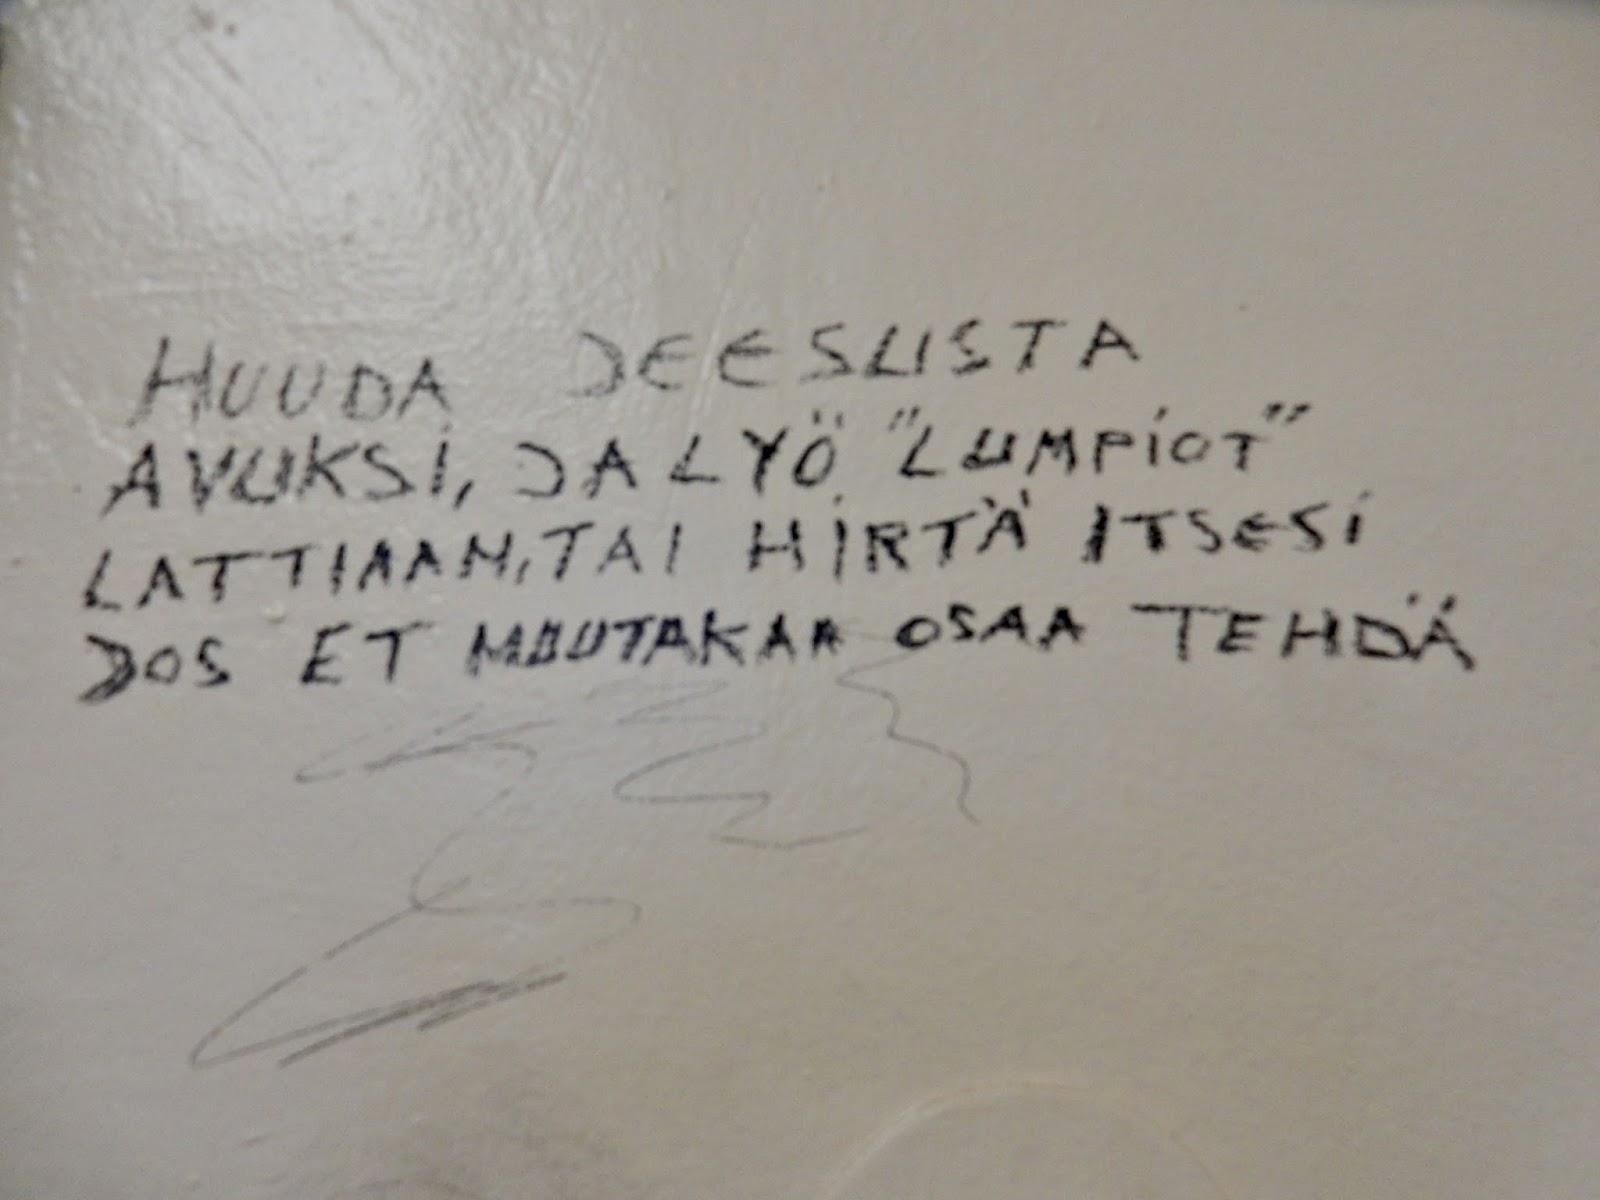 HUUDA JEESUSTA
AVUKSI, JA LYÖ "LUMPIOT"
LATTIAAN, TAI HIRTÄ ITSESI
JOS ET MUUTAKAA OSAA TEHDÄ